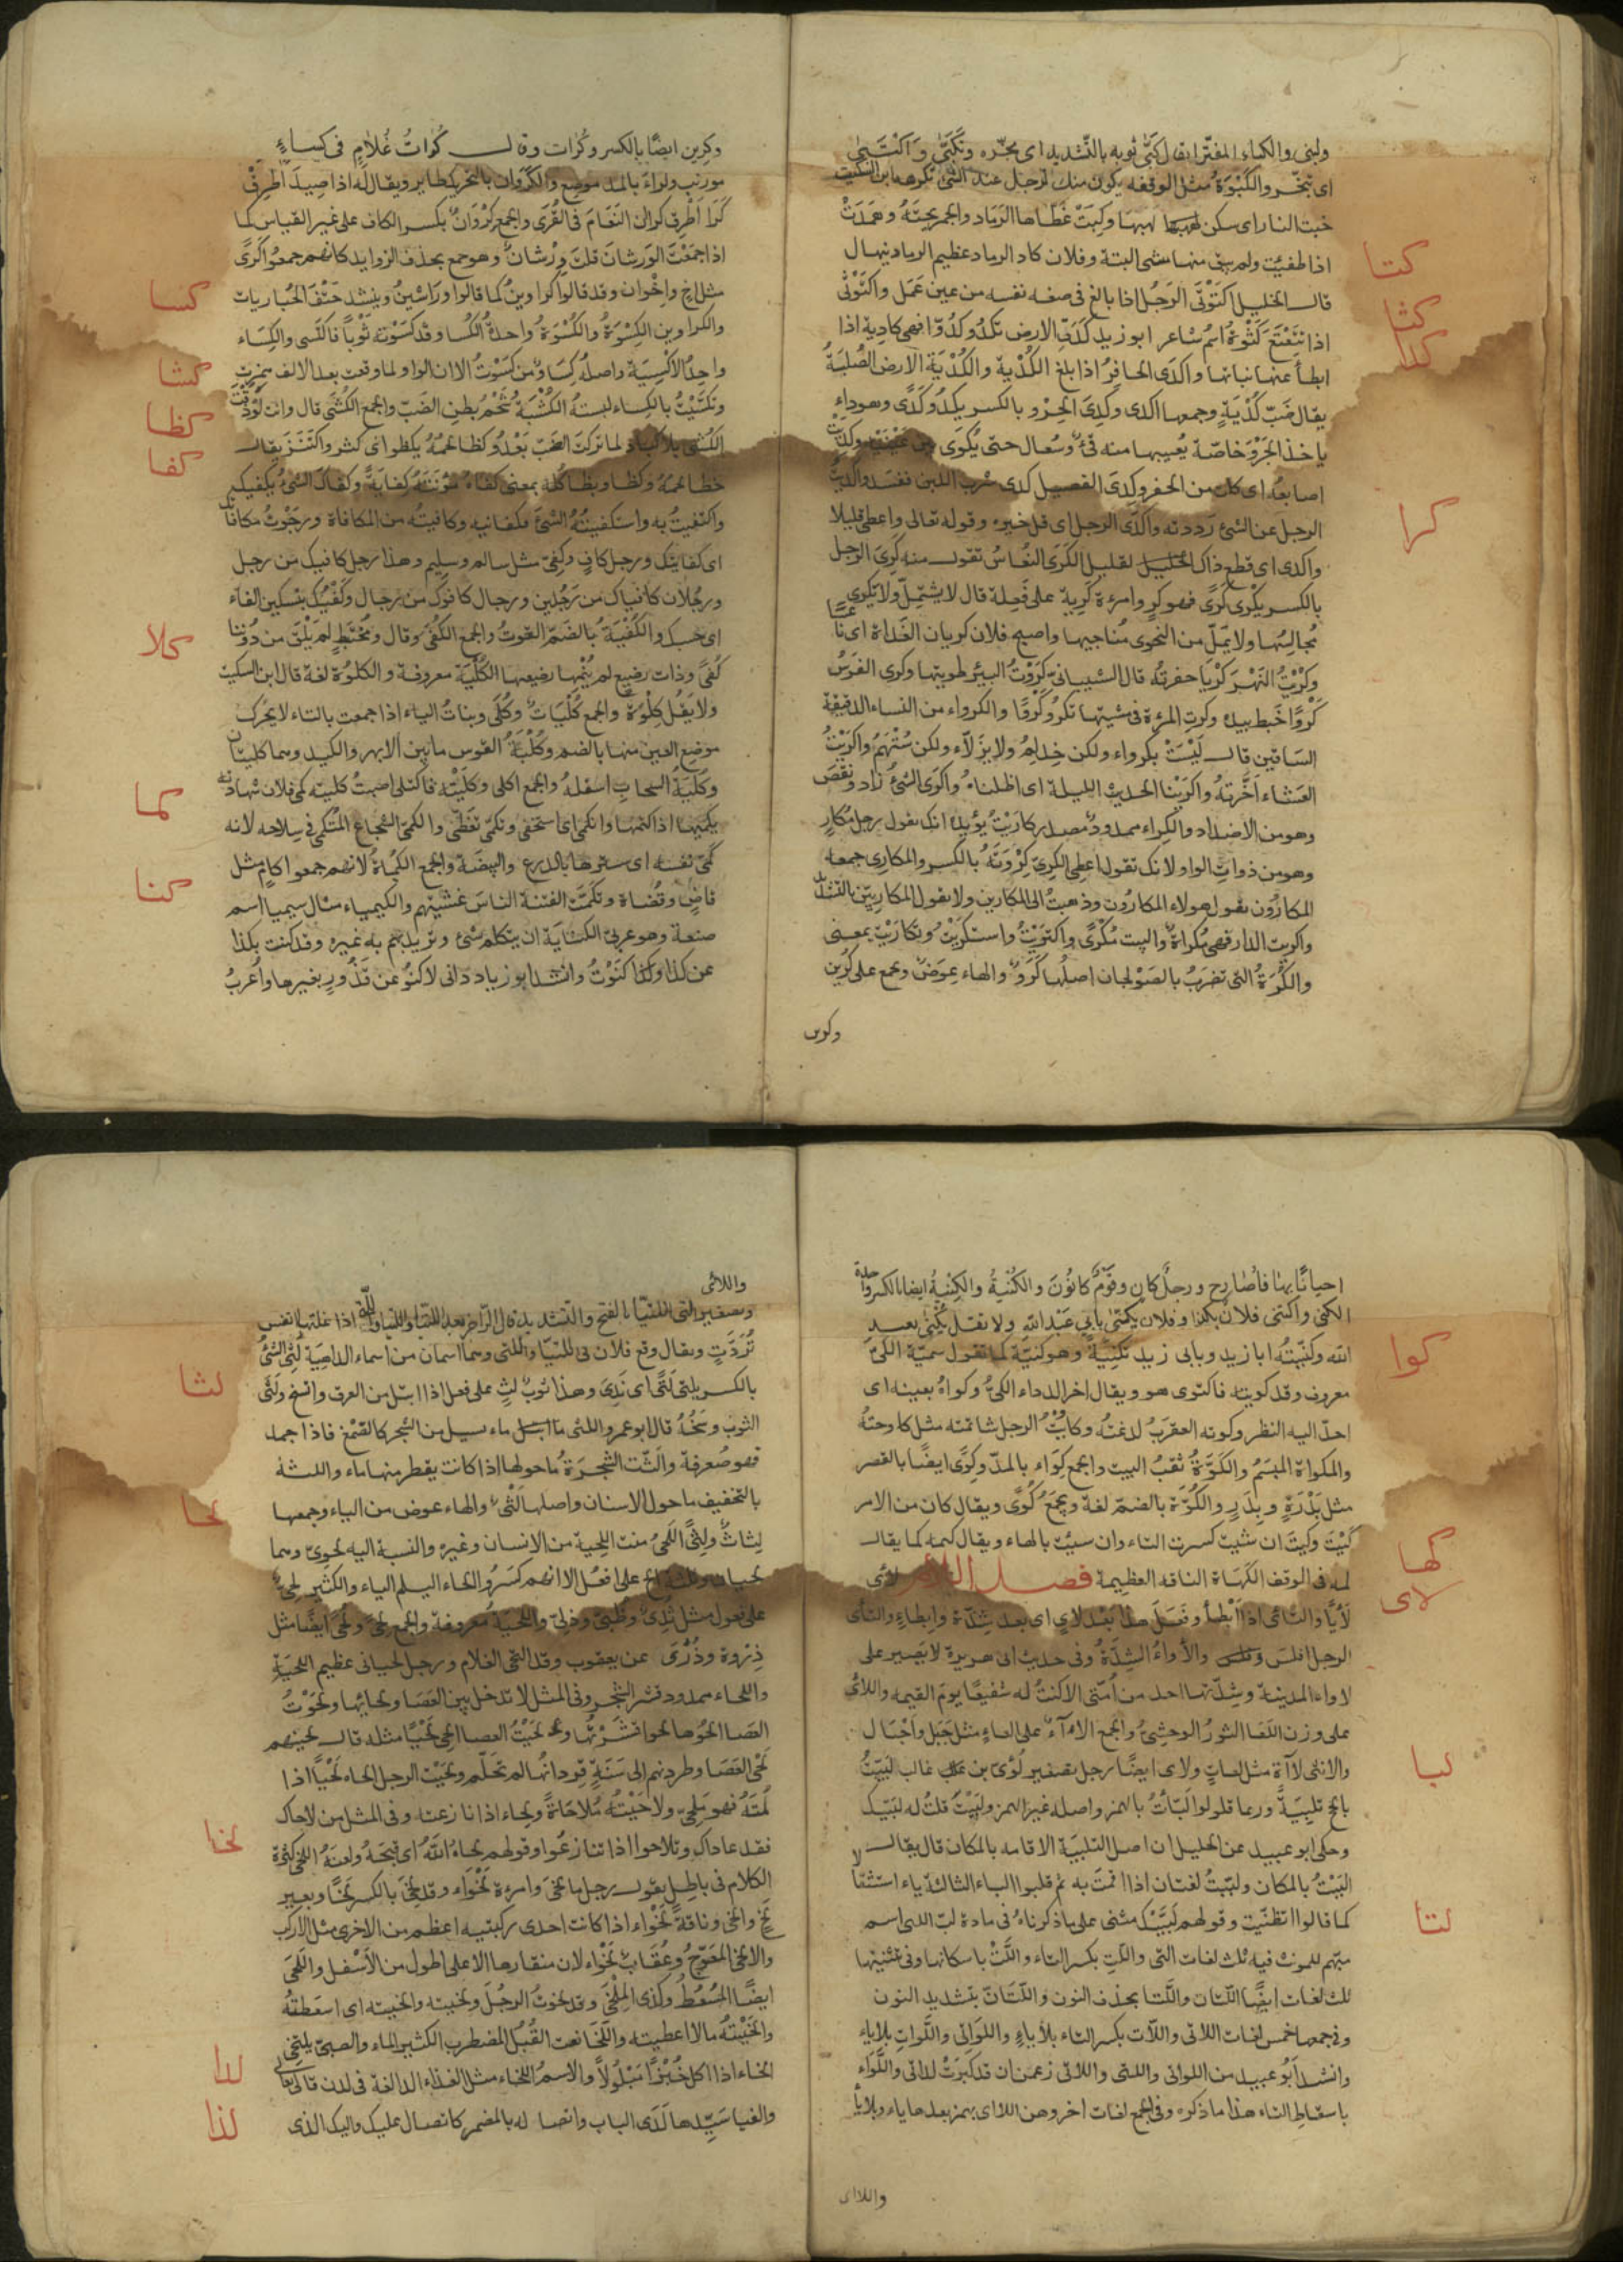 اى تبخر والكبوة مثل الوقفة يكون منك لرجل عند الشئ تكرهه ابن السكيت
خبت النار اى سكن لهبها وكبت غطاها الرماد والجمر تحته وهمدت
اذا طفئت ولم يبق منها شى البتة وفلان كاد الرماد عظيم الرماد ينهال
كتا
قال الخليل اكتوتى الرجل اذا بالغ فى صفة نفسه من عين عمل واكتوتى
كثا
اذا تتعتع كثوة اسم شاعر ابو زيد كدت الارض تكدو كدوا فهى كادية اذا
كدا
ابطأ عنها نباتها واكدى الحافر اذا بلغ الكدية والكدية الارض الصلبة
يقال ضب كدية وجمعها اكدى وكدى الجرو بالكسر يكدو كدى وهو داء
ياخذ الجرو خاصة يصيبها منه قئ وسعال حتى يكوى بين عينيه وكدت
اصابعه اى كلت من الحفر وكدى الفصيل كدى شرب اللبن ففسد
الرجل عن الشئ رددته واكدى الرجل اى قل خيره وقوله تعالى واعطى قليلا
كرا
واكدى اى قطع ذاك القليل الكرى النعاس تقول منه كرى الرجل
بالكسر يكرى كرى فهو كر وامرءة كرية على فعلة قال لا يشتمل ولا يكرى
مجالسها ولا يمل من النجوى مناجيها واصبح فلان كريان الغداة اى ناعسا
وكريت النهر كريا حفرته قال الشيبانى كروت البئر طويتها وكرى الفرس
كروا خبط بيده وكرت المرءة فى مشيتها تكرو كروا والكرواء من النساء الدقيقة
الساقين قال ليست بكرواء ولكن خدلم ولا بزلاء ولكن ستهم واكريت
العشاء اخرته واكرينا الحديث الليلة اى اطلناه واكرى الشئ زاد ونقص
وهو من الاضداد والكراء ممدود مصدر كاريت يؤيده انك تقول رجل مكار
وهو من ذوات الواو لانك تقول اعطى الكرى كروته بالكسر والمكارى جمعه
المكارون تقول هولاء المكارون وذهبت الى المكارين ولا تقول المكاريين بالتشديد
واكريت الدار فهى مكراة والبيت مكرى واكتريت واستكريت وتكاريت بمعنى
والكرة التى تضرب بالصولجان اصلها كرو والهاء عوض وتجمع على كرين
وكرين
وكرين ايضا بالكسر وكرات وقال كرات غلام فى كساء
مورنب ولواء بالمد موضع والكروان بالتحريك طاير ويقال له اذا صيد اطرق
كرا اطرق كرا ان النعام فى القرى والجمع كروان بكسر الكاف على غير القياس كما
اذا جمعت الورشان قلت ورشان وهو جمع بحذف الزوايد كانهم جمعوا كرى
كسا
مثل اخ واخوان وقد قالوا كراوين كما قالوا وراشين وينشد حتف الحباريات
والكراوين الكسوة والكسوة واحدة الكسا وقد كسوته ثوبا فاكتسى والكساء
كشا
واحد الاكسية واصله كساو من كسوت الا ان الواو لما وقعت بعد الالف همزت
كظا
وتكسيت بالكساء لبسته الكشية شحم بطن الضب والجمع الكشى قال وانت لو ذقت
كفا
الكشى بالاكباد لما تركت الضب يعدو كظا لحمه يكظو اى كثر واكتنز يقال
خظا لحمه وكظا وبظا كله بمعنى كفاه مؤنته كفاية وكفاك الشئ يكفيك
واكتفيت به واستكفيته الشئ فكفانيه وكافيته من المكافاة ورجوت مكافاتك
اى كفايتك ورجل كاف وكفى مثل سالم وسليم وهذا رجل كافيك من رجل
ورجلان كافياك من رجلين ورجال كافوك من رجال وكفيك بتسكين الفاء
كلا
اى حسبك والكفية بالضم القوت والجمع الكفى وقال ومختبط لم يلق من دوننا
كفى وذات رضيع لم ينمها رضيعها الكلية معروفة والكلوة لغة قال ابن السكيت
ولا يقل كلوة والجمع كليات وكلى وبنات الياء اذا جمعت بالتاء لا يحرك
موضع العين منها بالضم وكلية القوس ما بين الابهر والكبد وهما كليتان
كما
وكلية السحاب اسفله والجمع الكلى وكليته فاكتلى اصبت كليته كمى فلان شهادته
يكميها اذا كتمها وانكمى اى استخفى وتكمى تغطى والكمى الشجاع المتكمى فى سلاحه لانه
كنا
كمى نفسه اى سترها بالدرع والبيضة والجمع الكماة لانهم جمعوا كام مثل
قاض وقضاة وتكمت الفتنة الناس غشيتهم والكيمياء مثال سيميا اسم
صنعة وهو عربى الكناية ان يتكلم بشئ وتريد به غيره وقد كنيت بكذا
عن كذا وكذا كنوت وانشد ابو زياد وانى لاكنو عن قذور بغيرها واعرب
احيانا بها فاصارح ورجل كان وقوم كانون والكنية والكنية ايضا بالكسر واحدة
الكنى واكتنى فلان بكذا وفلان يكنى بابى عبد الله ولا تقل يكنى بعبد
كوا
الله وكنيته ابا زيد وبابى زيد تكنية وهو كنيه كما تقول سميه الكى
معروف وقد كويته فاكتوى هو ويقال اخر الداء الكى وكواه بعينه اى
احد اليه النظر وكوته العقرب لدغته وكاويت الرجل شاتمته مثل كاوحته
والمكواة الميسم والكوة ثقب البيت والجمع كواء بالمد وكوى ايضا بالقصر
مثل بدرة وبدر والكوة بالضم لغة ويجمع كوى ويقال كان من الامر
كها
كيت وكيت ان شئت كسرت التاء وان سئت بالهاء ويقال كيمه كما يقال
لاى
لمه فى الوقف الكهاة الناقة العظيمة فصل اللام لاى
لأيا والتاى اذا ابطأ وفعل هذا بعد لاى اى بعد شدة وابطاء والتأى
الرجل افلس والأواء الشدة وفى حديث ابى هريرة لا يصبر على
لاواء المدينة وشدتها احد من امتى الا كنت له شفيعا يوم القيمة واللأى
على وزن اللعا الثور الوحشى والجمع الاءآء على العاء مثل جبل واجبال
لبا
والانثى لاآة مثل لعاة ولاى ايضا رجل تصغير لؤى بن غالب لبيت
بالحج تلبية وربما قالوا لبأت بالهمز واصله غير الهمز ولبيت قلت له لبيك
وحكى ابو عبيد عن الخليل ان اصل التلبية الاقامة بالمكان قال يقال
البيت بالمكان ولببت لغتان اذا اقمت به ثم قلبوا الباء الثالثة ياء استثقالا
لتا
كما قالوا تظنيت وقولهم لبيك مثنى على ما ذكرناه فى مادة لبب التى اسم
مبهم للمونث فيه ثلث لغات التى واللت بكسر التاء واللت باسكانها وفى تثنيتها
ثلث لغات ايضا اللتان واللتا بحذف النون واللتان بتشديد النون
وفى جمعها خمس لغات اللاتى واللات بكسر التاء بلا ياء واللواتى واللوات بلا ياء
وانشد ابو عبيد من اللواتى والتى واللاتى زعمن ان قد كبرت لداتى واللواء
باسقاط التاء هذا ما ذكره وفى الجمع لغات اخر وهن اللاى بهمز بعدها ياء وبلا ياء
واللاى
واللائى
وتصغير التى اللتيا بالفتح والتشديد قال الراجز بعد اللتيا واللتيا والتى اذا علتها انفس
لثا
تردت ويقال وقع فلان فى اللتيا والتى وهما اسمان من اسماء الداهية لثى الشئ
بالكسر يلثى لثى اى ندى وهذا ثوب لث على فعل اذا ابتل من العرق واتسخ ولثى
الثوب وسخه قال ابو عمرو اللثى ماء يسيل من الشجر كالصمغ فاذا جمد
فهو صعرور والثت الشجرة ما حولها اذا كانت يقطر منها ماء واللثة
لحا
بالتخفيف ما حول الاسنان واصلها لثى والهاء عوض من الياء وجمعها
لثاث ولثى اللحى منبت اللحية من الانسان وغيره والنسبة اليه لحوى وهما
لحيان وثلثة الح على افعل الا انهم كسروا الحاء ليسلم الياء والكثير لحى
على فعول مثل ثدى وظبى ودلى واللحية معروفة والجمع لحى ولحى ايضا مثل
ذروة وذرى عن يعقوب وقد التحى الغلام ورجل لحيانى عظيم اللحية
واللحاء ممدود قشر الشجر وفى المثل لا تدخل بين العصا ولحائها ولحوت
العصا الحوها لحوا قشرتها ولحيت العصا الحى لحيا مثله قال لحينهم
لحى العصا وطردنهم الى سنة قردانها لم تحلم ولحيت الرجل الحاه لحيا اذا
لمته فهو ملحى ولاحيته ملاحاة ولحاء اذا نازعته وفى المثل من لاحاك
لخا
فقد عاداك وتلاحوا اذا تنازعوا وقولهم لحاه الله اى قبحه ولعنه اللخى كثرة
الكلام فى باطل يقول رجل الخى وامرءة لخواء وقد لخى بالكسر لخا وبعير
لخ والخى وناقة لخواء اذا كانت احدى ركبتيه اعظم من الاخرى مثل الاركب
والالخى المعوج وعقاب لخواء لان منقارها الاعلى اطول من الاسفل واللخى
ايضا المسعط وكذى الملخى وقد لخوت الرجل ولخيته والخيته اى اسعطته
والخيته مالا اعطيته واللخا نعت القبل المضطرب الكثير الماء والصبى يلتخى
لدا
التخاء اذا اكل خبزا مبلولا والاسم اللخاء مثل الغذاء لدا لغة فى لدن قال تعالى
لذا
والفيا سيدها لدى الباب واتصا له بالمضمر كاتصال عليك واليك الذى